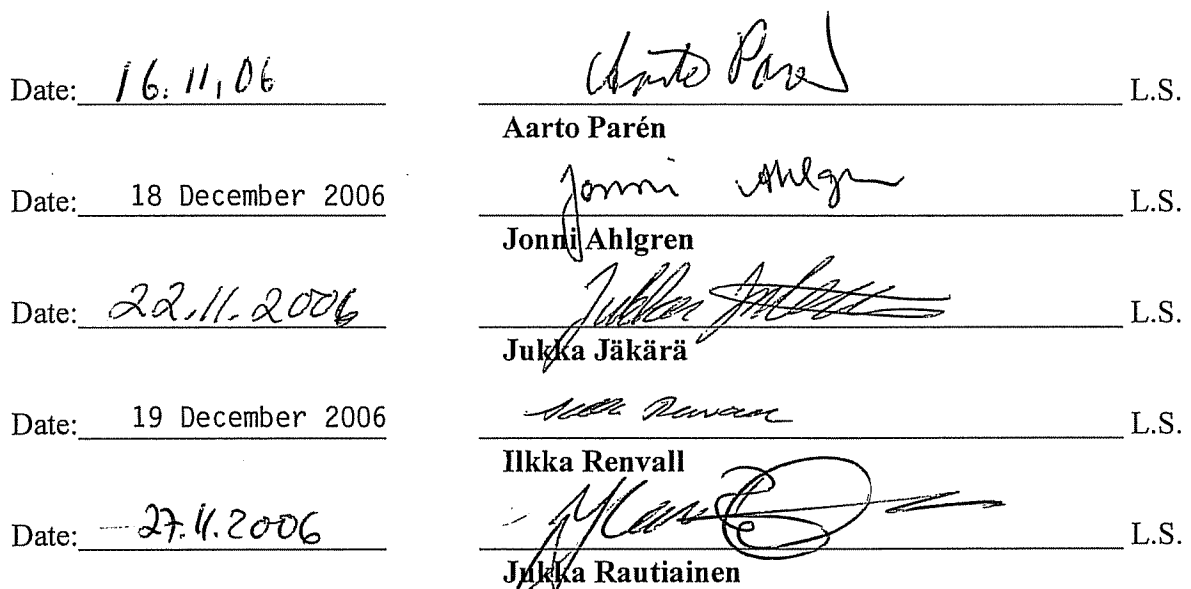 Date: 16.11,06 Aarto Paré L.S.
Aarto Parén
Date: 18 December 2006 Jonni Ahlgren L.S.
Jonni Ahlgren
Date: 22.11.2006 Jukka L.S.
Jukka Jäkärä
Date: 19 December 2006 L.S.
Ilkka Renvall
Date: 27.11.2006 L.S.
Jukka Rautiainen